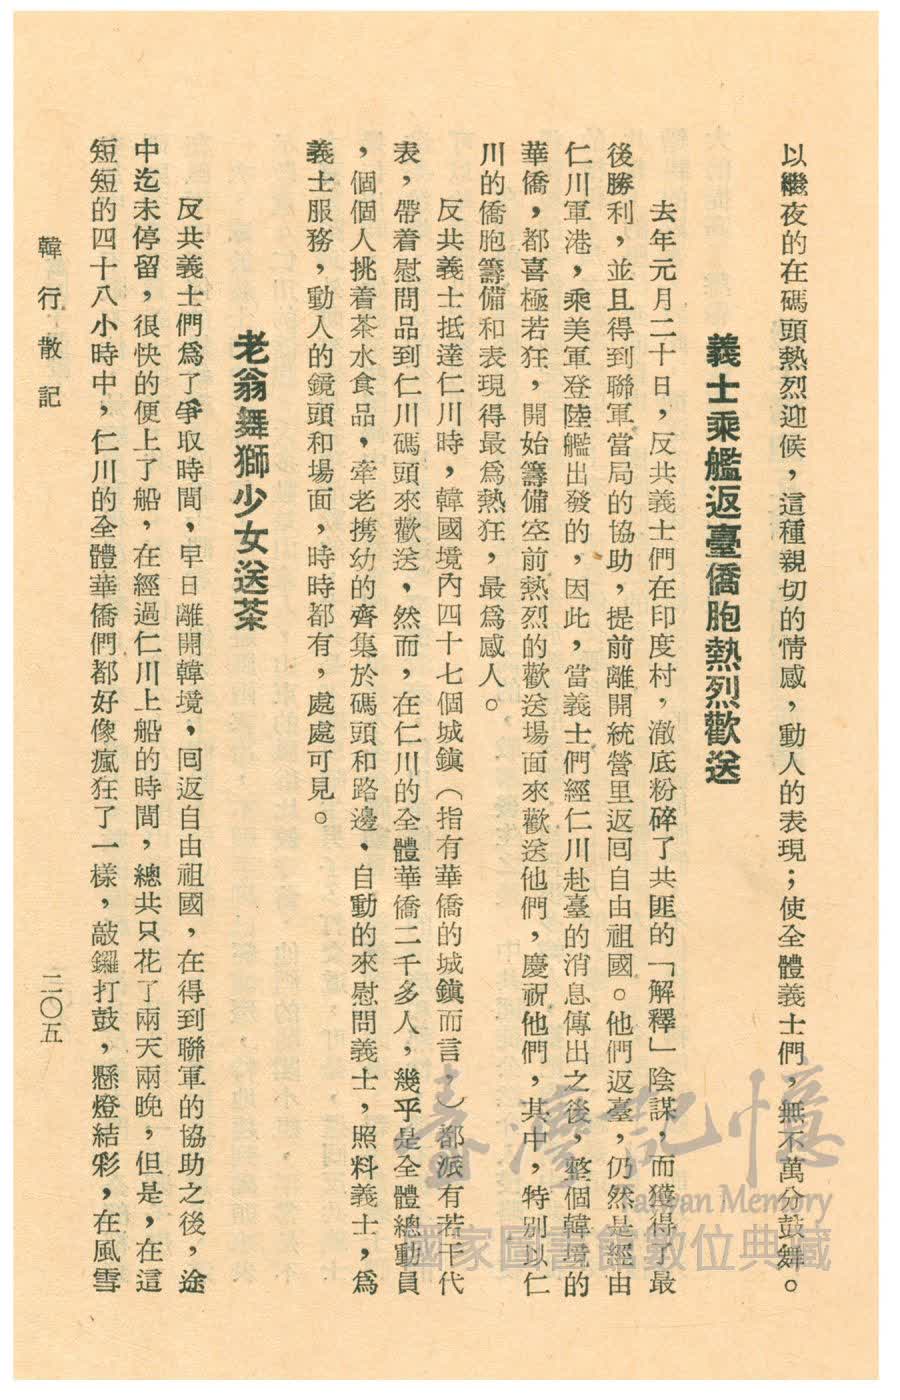 以繼夜的在碼頭熱烈迎候，這種親切的情感，動人的表現；使全體義士們，無不萬分鼓舞。
義士乘艦返臺僑胞熱烈歡送
去年元月二十日，反共義士們在印度村，澈底粉碎了共匪的「解釋」陰謀，而獲得了最
後勝利，並且得到聯軍當局的協助，提前離開統營里返囘自由祖國。他們返臺，仍然是經由
仁川軍港，乘美軍登陸艦出發的，因此，當義士們經仁川赴臺的消息傳出之後，整個韓境的
華僑，都喜極若狂，開始籌備空前熱烈的歡送場面來歡送他們，慶祝他們，其中，特別以仁
川的僑胞籌備和表現得最爲熱狂，最爲感人。
反共義士抵達仁川時，韓國境內四十七個城鎮（指有華僑的城鎮而言。）都派有若干代
表，帶着慰問品到仁川碼頭來歡送，然而，在仁川的全體華僑二千多人，幾乎是全體總動員
，個個人挑着茶水食品，牽老携幼的齊集於碼頭和路邊、自動的來慰問義士，照料義士，爲
義士服務，動人的鏡頭和場面，時時都有，處處可見。
老翁舞獅少女送茶
反共義士們爲了爭取時間，早日離開韓境，囘返自由祖國，在得到聯軍的協助之後，途
中迄未停留，很快的便上了船，在經過仁川上船的時間，總共只花了兩天兩晚，但是，在這
短短的四十八小時中，仁川的全體華僑們都好像瘋狂了一樣，敲鑼打鼓，懸燈結彩，在風雪
韓行散記
二〇五
臺灣記憶
Taiwan Memory
國家圖書館數位典藏